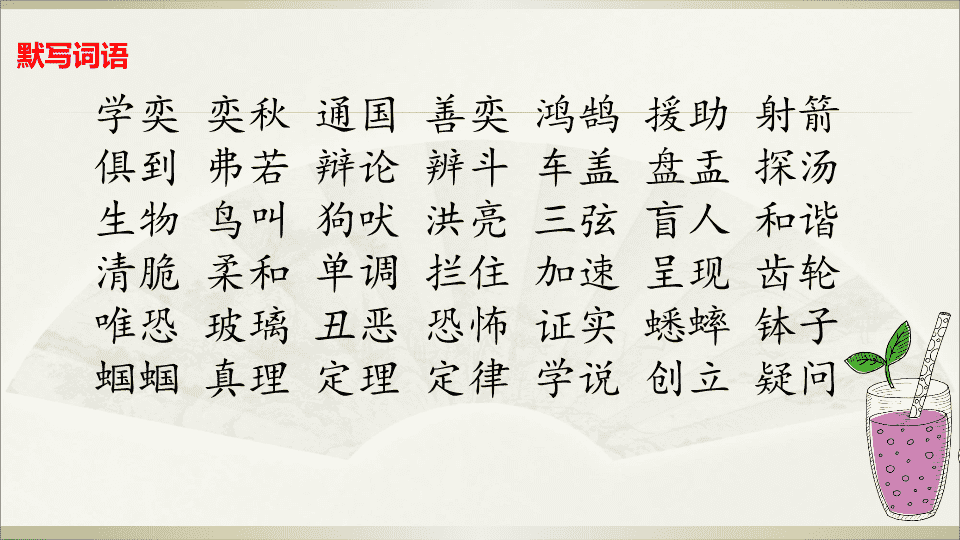 默写词语
学奕 奕秋 通国 善奕 鸿鹄 援助 射箭
俱到 弗若 辩论 辨斗 车盖 盘盂 探汤
生物 鸟叫 狗吠 洪亮 三弦 盲人 和谐
清脆 柔和 单调 拦住 加速 呈现 齿轮
唯恐 玻璃 丑恶 恐怖 证实 蟋蟀 钵子
蝈蝈 真理 定理 定律 学说 创立 疑问